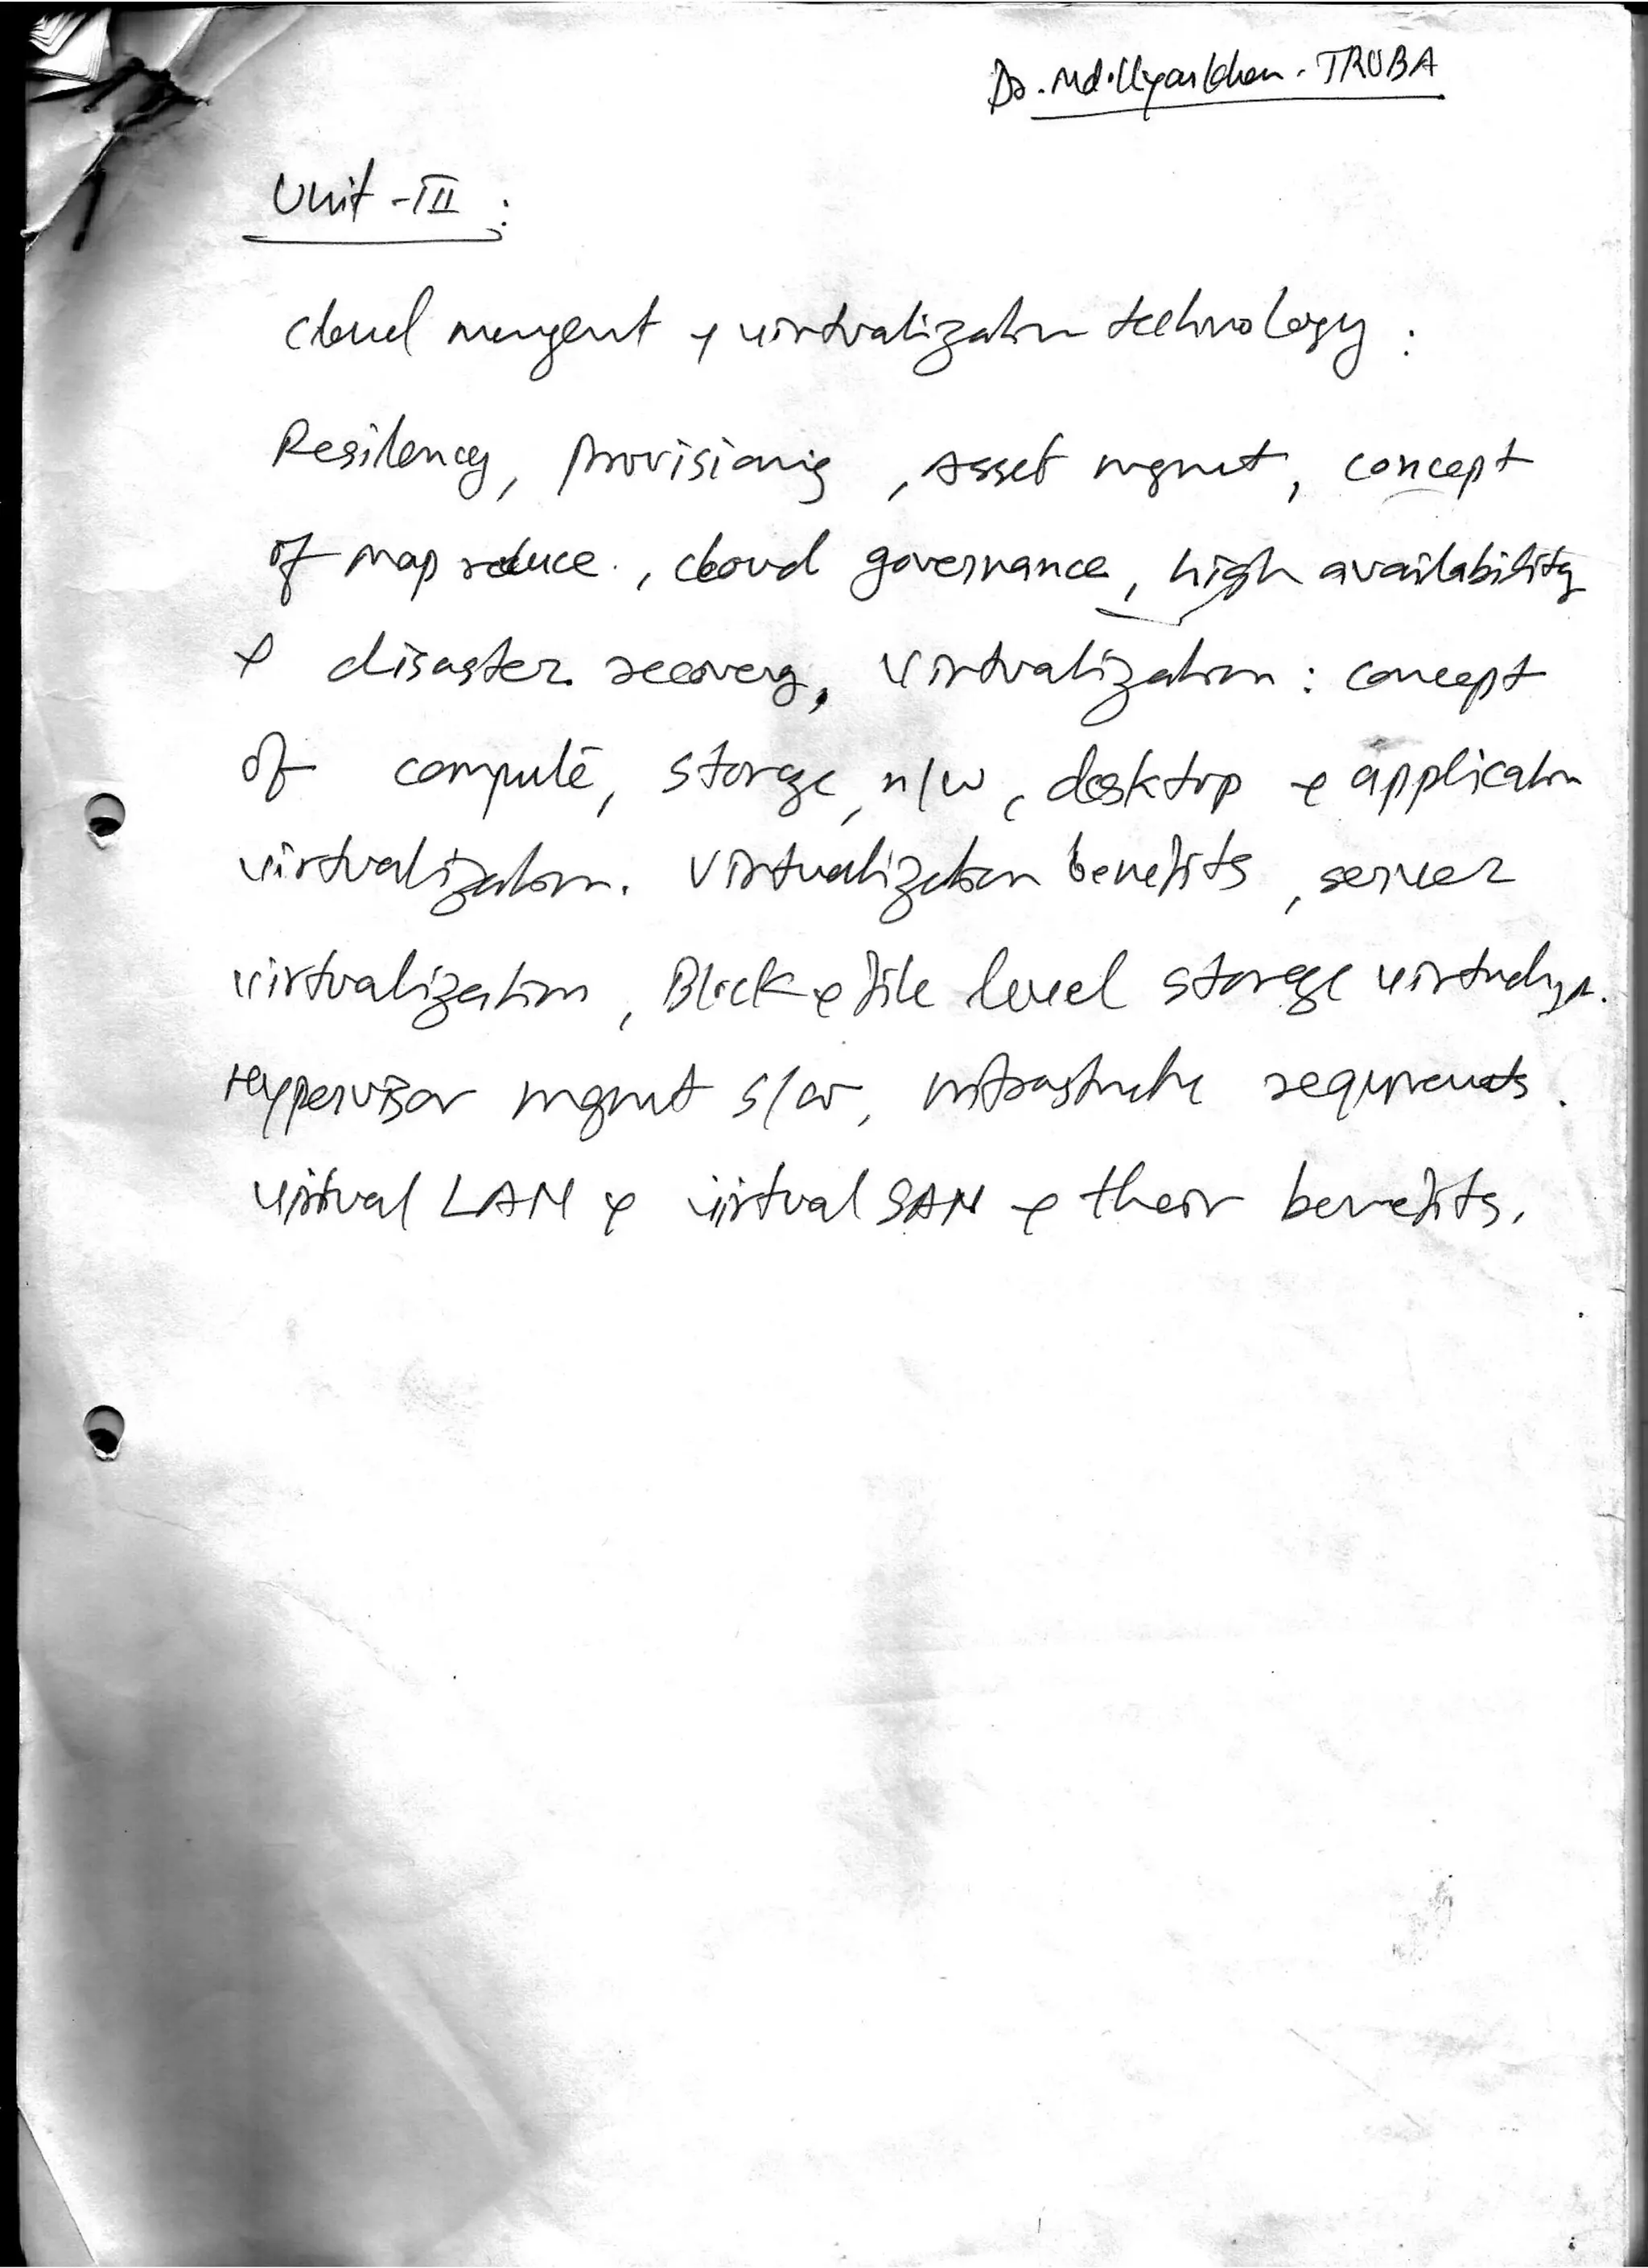 Dr. Md. Ilyas Khan. TRUBA
Unit -III :
Cloud mngent & virtualization technology :
Resilency, Provisioning, Asset mgmt, concept
of map reduce, cloud governance, high availability
& disaster recovery, Virtualization : concept
of compute, storage, n/w, desktop & application
virtualization. Virtualization benefits, server
virtualization, Block & file level storage virtualizn.
Hypervisor mgmt s/w, infrastructure requirements.
Virtual LAN & virtual SAN & their benefits.